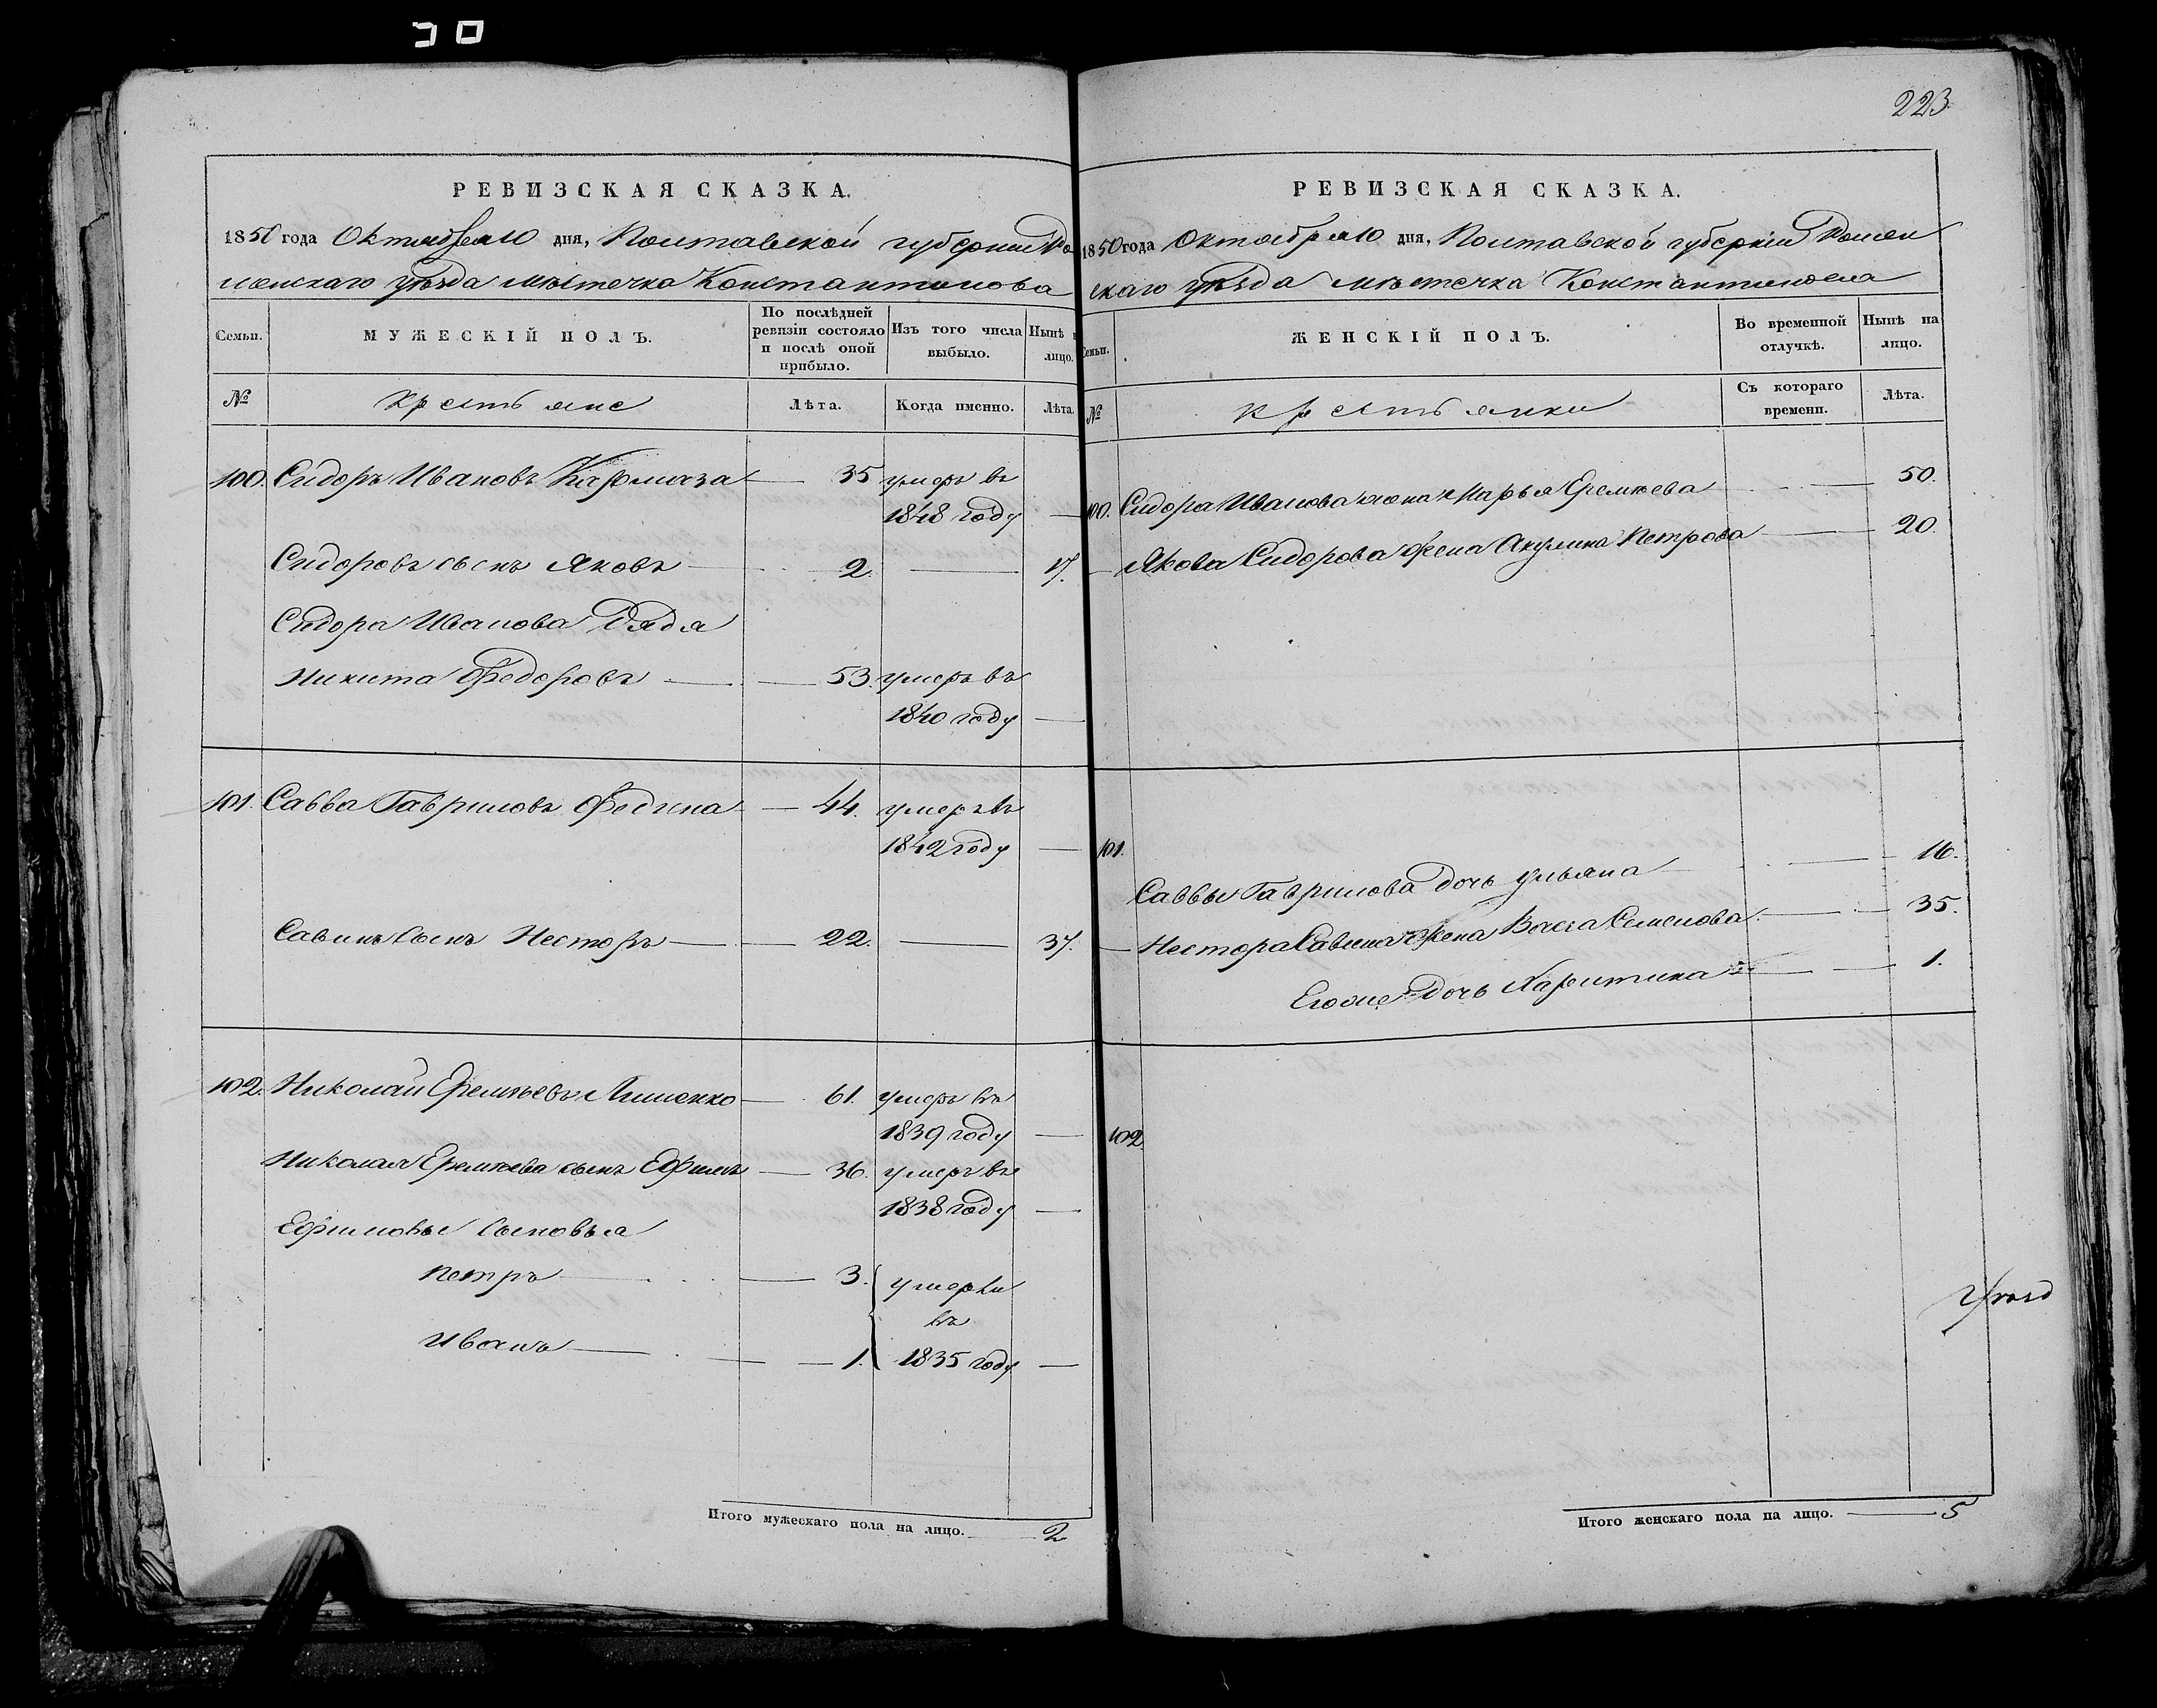 223
РЕВИЗСКАЯ СКАЗКА.
1850 года Октября 10 дня, Полтавской губернии Ро
менскаго уѣзда мѣстечка Константинова
Семьи.
МУЖЕСКІЙ ПОЛЪ.
По послѣдней
ревизіи состояло
и послѣ оной
прибыло.
Изъ того числа
выбыло.
Нынѣ
лицо.
№
Крестьяне
Лѣта.
Когда именно.
Лѣта.
100. Сидоръ Ивановъ Кармаза 35 умеръ въ
1848 году
Сидоровъ сынъ Яковъ 2. 17.
Сидора Иванова дядя
Никита Федоровъ 53. умеръ въ
1840 году
101. Савва Гавриловъ Федина 44. умеръ въ
1842 году
Савинъ сынъ Несторъ 22. 37.
102. Николай Еремѣевъ 61. умеръ въ
1839 году
Николая Еремѣева сынъ Ефимъ 36. умеръ въ
1838 году
Ефимовы сыновья
Петръ 3. умерли
въ
Иванъ 1. 1835 году
Итого мужескаго пола на лицо. 2
РЕВИЗСКАЯ СКАЗКА.
1850 года Октября 10 дня, Полтавской губерніи Ромен
скаго уѣзда мѣстечка Константинова
Семьи.
ЖЕНСКІЙ ПОЛЪ.
Во временной
отлучкѣ.
Нынѣ на
лицо.
№
Крестьянки
Съ котораго
времени.
Лѣта.
100. Сидора Иванова жена Марья Еремѣева 50.
Якова Сидорова жена Акулина Петрова 20.
101.
Саввы Гаврилова дочь Ульяна 16.
Нестора Савина жена Васса Семенова 35.
Егоже дочь Харитина 1.
102
Итого женскаго пола на лицо. 5